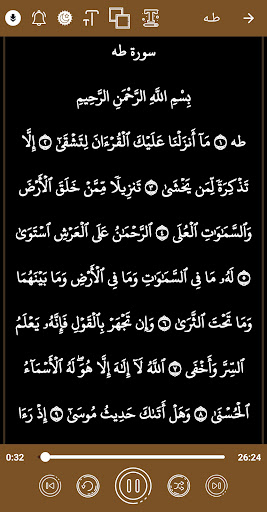 طه
سورة طه
بِسْمِ اللَّهِ الرَّحْمَٰنِ الرَّحِيمِ
طه ۝١ مَآ أَنزَلْنَا عَلَيْكَ ٱلْقُرْءَانَ لِتَشْقَىٰٓ ۝٢ إِلَّا
تَذْكِرَةً لِّمَن يَخْشَىٰ ۝٣ تَنزِيلًا مِّمَّنْ خَلَقَ ٱلْأَرْضَ
وَٱلسَّمَٰوَٰتِ ٱلْعُلَى ۝٤ ٱلرَّحْمَٰنُ عَلَى ٱلْعَرْشِ ٱسْتَوَىٰ
۝٥ لَهُۥ مَا فِى ٱلسَّمَٰوَٰتِ وَمَا فِى ٱلْأَرْضِ وَمَا بَيْنَهُمَا
وَمَا تَحْتَ ٱلثَّرَىٰ ۝٦ وَإِن تَجْهَرْ بِٱلْقَوْلِ فَإِنَّهُۥ يَعْلَمُ
ٱلسِّرَّ وَأَخْفَى ۝٧ ٱللَّهُ لَآ إِلَٰهَ إِلَّا هُوَ ۖ لَهُ ٱلْأَسْمَآءُ
ٱلْحُسْنَىٰ ۝٨ وَهَلْ أَتَىٰكَ حَدِيثُ مُوسَىٰٓ ۝٩ إِذْ رَءَا
0:32 26:24